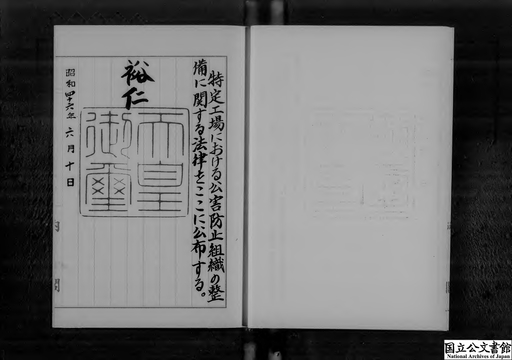 特定工場における公害防止組織の整
備に関する法律をここに公布する。
裕仁
天皇
御璽
昭和四十六年六月十日
国立公文書館
National Archives of Japan